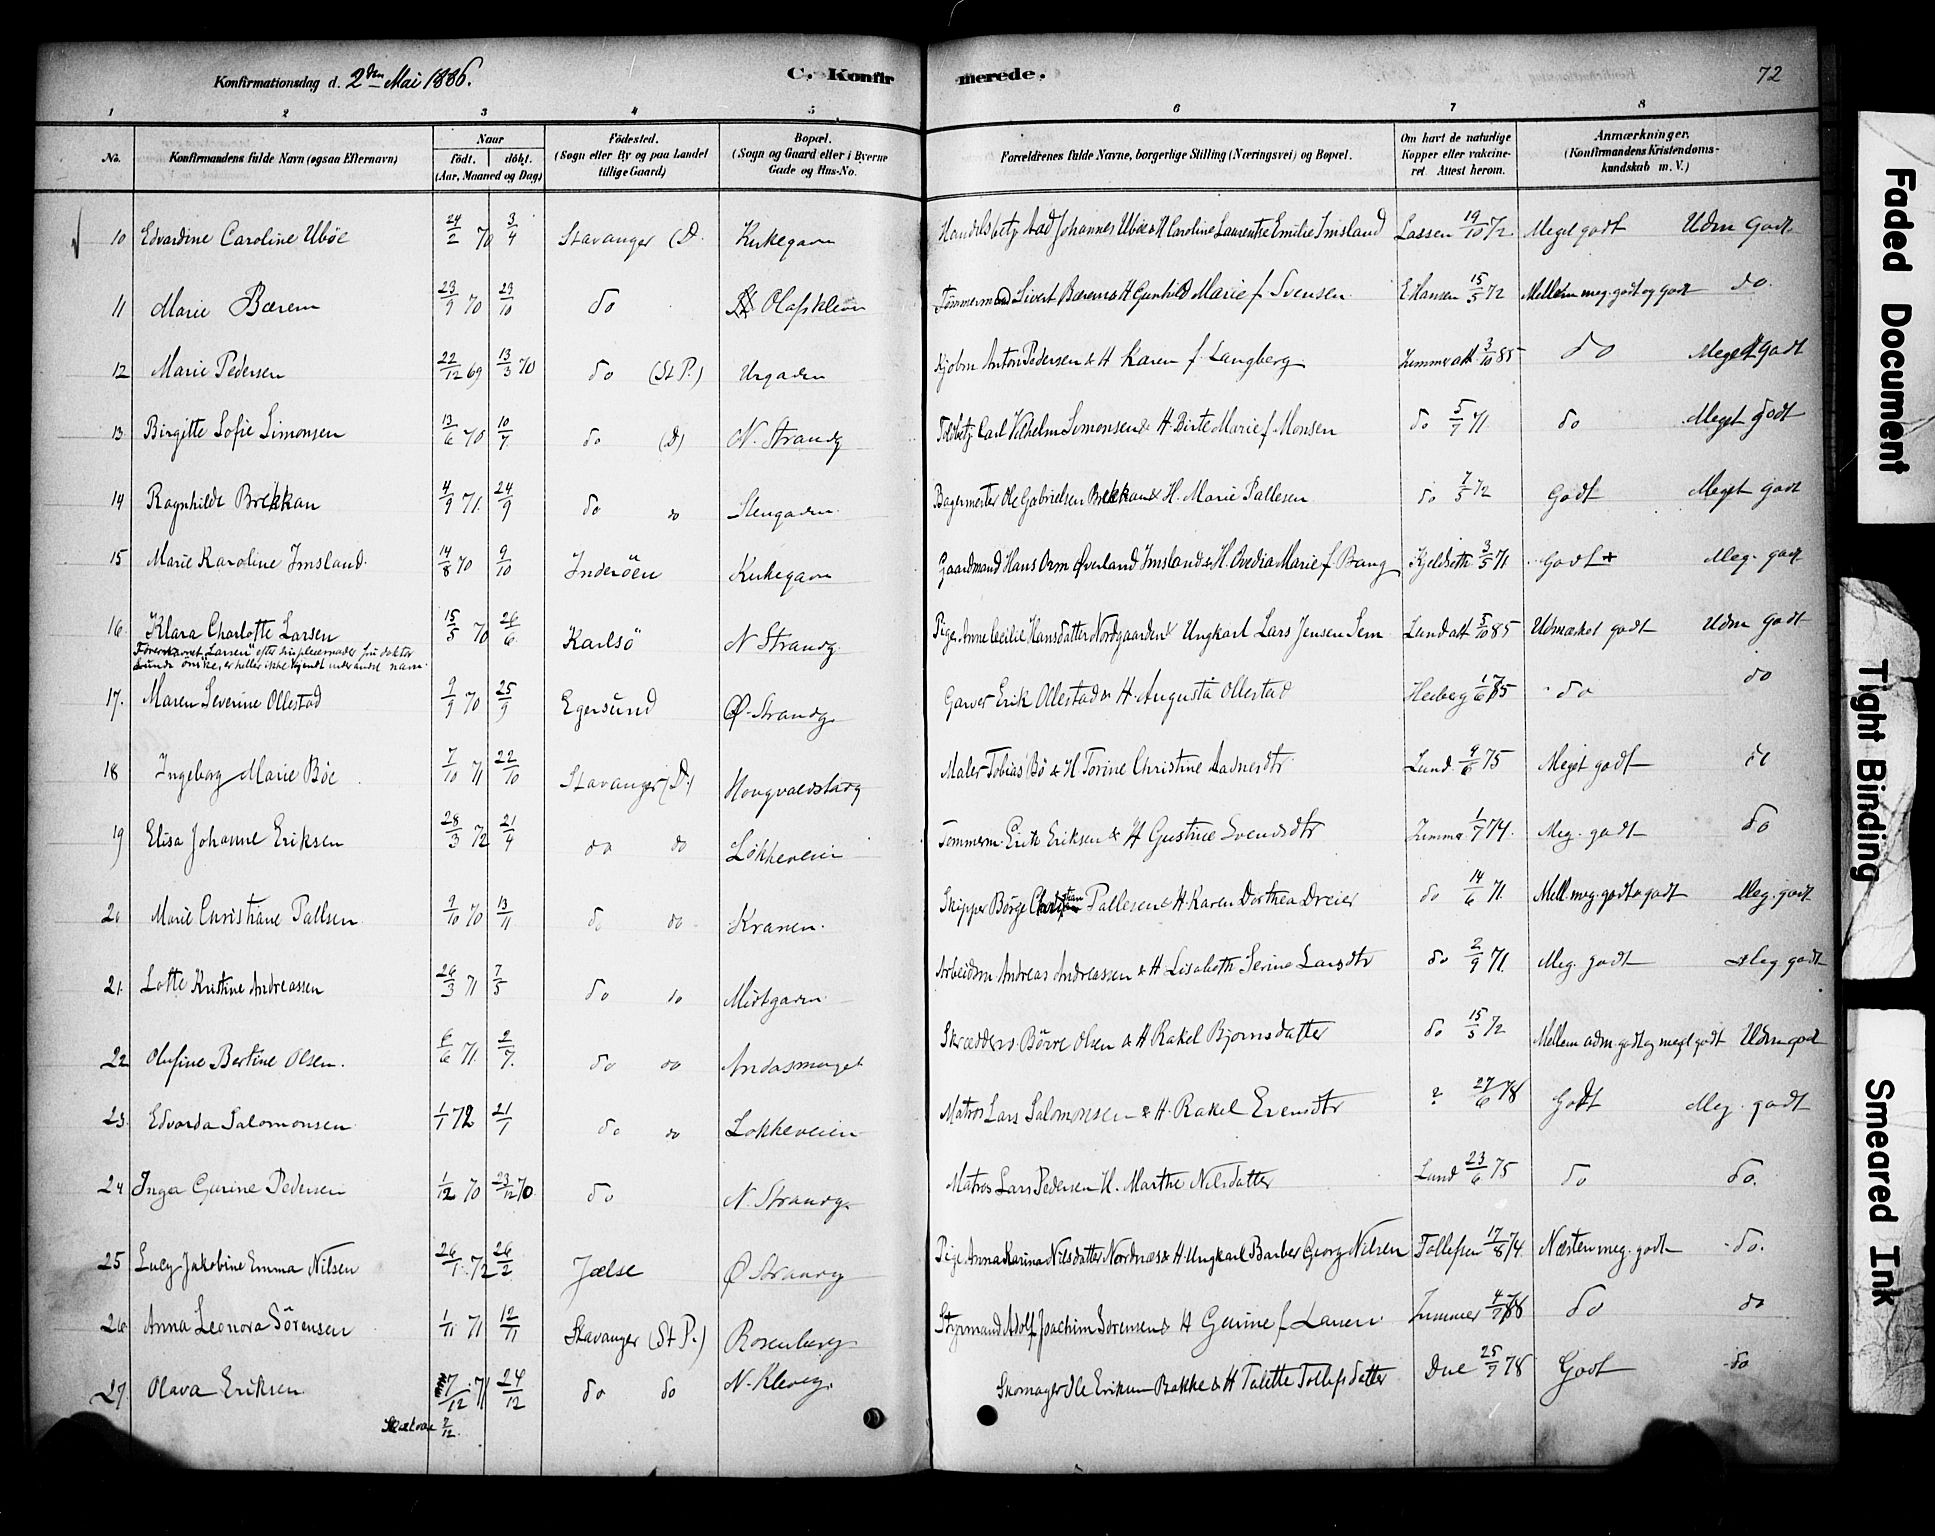 Konfirmationsdag d. 2den Mai 1886.
C. Konfirmerede.
72
1 2 3 4 5 6 7 8
No. Konfirmandens fulde Navn (ogsaa Efternavn) Naar født. døbt. (Aar, Maaned og Dag) Fødested. (Sogn eller By og paa Landet tillige Gaard) Bopæl. (Sogn og Gaard eller i Byerne Gade og Hus-No. Forældrenes fulde Navne, borgerlige Stilling (Næringsvei) og Bopæl. Om havt de naturlige Kopper eller vakcineret. Attest herom. Anmærkninger. (Konfirmandens Kristendomskundskab m. V.)
10 Edvardine Caroline Uböe 24/2 70 3/4 Stavanger (D. Kirkegaen Johannes Uböe & H Caroline Laurentse Emilie Imsland Lassen 19/10 72. Meget godt Udm Godt.
11 Marie Bærem 23/9 70 23/10 do Olafskleven Tømmermand Sivert Bærem & H Gunhild Marie f. Svensen E Hansen 15/5 72 Mellem meg. godt og godt do.
12 Marie Pedersen 22/12 69 13/3 70 do (St P.) Urgaden Anton Pedersen & H Karen f. Langberg Zimmer att 3/10 85 do Meget godt
13 Birgitte Sofie Simonsen 13/6 70 10/7 do (D) N. Strandg Toldbetj. Carl Vilhelm Simonsen & H. Dirte Marie f. Monsen do 5/7 71 do Meget godt
14 Ragnhilde Brekkan 4/9 71. 24/9 do do Stengaden. Bagermester Ole Gabrielsen Brekkan & H. Marie Pallesen do 7/5 72 Godt Meget godt
15 Marie Karoline Imsland. 14/8 70 9/10 Inderöen Kirkegaen Gaardmand Hans Orm Øverland Imsland & H. Ovedia Marie f. Bang Kjeldseth 3/5 71 Godt + Meg. godt
16. Klara Charlotte Larsen 15/5 70 26/6 Karlsö N Strandg. Pige Anne Cecilie Hansdatter Nordgaarden & Ungkarl Lars Jensen Sem Lund att 5/10 85 Udmærket godt Udm godt
17. Maren Severine Ollestad 9/9 70 25/9 Egersund Ø. Strandg. Garver Erik Ollestad & H. Augusta Ollestad Heiberg 17/6 85 do do
18 Ingeborg Marie Böe 7/10 71 22/10 Stavanger (D.) Hougvaldstadg Maler Tobias Bö & H Torine Christine Aadnesdtr Lund 9/6 75 Meget godt do
19 Elisa Johanne Eriksen 28/3 72 21/4 do do Lökkeveien Tømmerm. Erik Eriksen & H Gustine Svendsdtr Zimmer 1/7 74. Meg. godt do
20 Marie Christiane Pallsen 9/10 70 13/11 do do Kranen. Skipper Børge Christian Pallesen & H. Karen Dorthea Dreier do 14/6 71. Mell. meg. godt o godt Meg. godt
21. Lotte Kristine Andreassen 26/3 71 7/5 do do Midtgaden. Arbeidsm Andreas Andreassen & H Lisabeth Serine Larsdtr do 2/9 71. Meg. godt Meg godt
22 Olufine Bertine Olsen. 6/6 71 2/7. do do Andasmoget Skrædderm. Börre Olsen & H Rakel Bjornsdatter do 15/5 72 Mellem udm godt og meget godt Udm godt
23. Edvarda Salomonsen 1/1 72 21/1 do do Lokkeveien Matros Lars Salomonsen & H. Rakel Evensdtr ? 27/6 78 Godt Meg. godt
24 Inga Gurine Pedersen 1/12 70 23/12 70 do N. Strandg. Matros Lars Pedersen H. Marthe Nilsdatter Lund 23/6 75 do do.
25 Lucy Jakobine Emma Nilsen 26/1. 72 26/2 Jælse Ø Strandg Pige Anna Karina Nilsdatter Nordnæs & H. Ungkarl Barber Georg Nilsen Tollefsen 17/8 74. Næsten meg. godt do.
26. Anna Leonora Sörensen 1/11 71 12/11 Stavanger (St P.) Rosenberg Styrmand Adolf Joachim Sørensen & H Gurine f. Larsen. Zimmer do do
27. Olava Eriksen 7/12 71 24/12 do do N. Klevg. Skomager Ole Eriksen Bakke & H Talette Tollefsdatter Due 25/7 78 Godt do
2/12.
Faded Document
Tight Binding
Smeared Ink